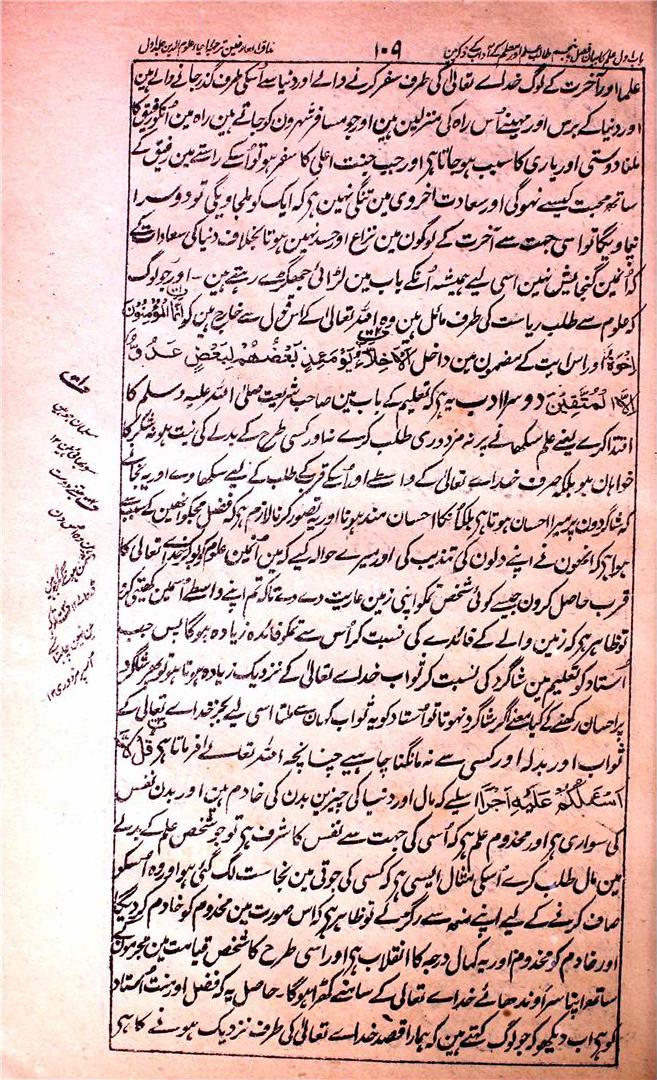 باب اول علم کا بیان فصل پنجم طالب علم اور معلم کے آداب کے ذکر میں
۱۰۹
مذاق العارفین ترجمہ احیاء علوم الدین جلد اول
علما اور آخرت کے لوگ خداے تعالیٰ کی طرف سفر کرنے والے اور دنیا سے اُسکی طرف گذر جانے والے ہین
اور دنیا کے برس اور مہینے اُس راہ کی منزلین ہین اور جو مسافر شہرون کو جاتے ہین راہ مین اُنکو رفیق کا
ملنا دوستی اور یاری کا سبب ہو جاتا ہی اور جب جنت اعلی کا سفر ہو تو اُسکے راستے مین رفیق کے
ساتھ محبت کیسے نہوگی اور سعادت اخروی مین تنگی نہین ہی کہ ایک کو ملجاویگی تو دوسرا
نپاویگا تو اسی جہت سے آخرت کے لوگون مین نزاع اور حسد نہین ہوتا بخلاف دنیا کی سعادات کے
کہ اُنمین گنجایش نہین اسی لیے ہمیشہ اُنکے باب مین لڑائی جھگڑے رہتے ہین ۔ اور جو لوگ
کہ علوم سے طلب ریاست کی طرف مائل ہین وہ اللہ تعالیٰ کے اس قول سے خارج ہین کہ اِنَّمَا الْمُؤْمِنُوْنَ
اِخْوَۃٌ اور اس آیت کے مضمون مین داخل اَلْاَخِلَّاءُ یَوْمَئِذٍ بَعْضُھُمْ لِبَعْضٍ عَدُوٌّ
اِلَّا الْمُتَّقِیْنَ دوسرا ادب یہ ہی کہ تعلیم کے باب مین صاحب شریعت صلی اللہ علیہ وسلم کا
اقتدا کرے یعنے علم سکھانے پر نہ مزدوری طلب کرے نہ اور کسی طرح کے بدلے کی نیت ہو نہ شکر کا
خواہان ہو بلکہ صرف خداے تعالیٰ کے واسطے اور اُسکے قرب کے طلب کے لیے سکھاوے اور یہ نجانے
کہ شاگردون پر میرا احسان ہوتا ہی بلکہ اُنکا احسان مند ہونا اور یہ تصور کرنا لازم ہی کہ فضل مجکو انھین کے سبب سے
ہوا ہی کہ انھون نے اپنے دلون کی تہذیب کی اور میرے حوالہ کیے کہ مین اُنمین علوم کو بو کر خداے تعالیٰ کا
قرب حاصل کرون جیسے کوئی شخص تمکو اپنی زمین عاریت دے دے تاکہ تم اپنے واسطے اُسمین کھیتی کرو
تو ظاہر ہی کہ زمین والے کے فائدے کی نسبت کر اُس سے تمکو فائدہ زیادہ ہوگا پس جب
اُستاد کو تعلیم مین شاگرد کی نسبت کر ثواب خداے تعالیٰ کے نزدیک زیادہ ہوتا ہو تو پھر شاگرد
پر احسان رکھنے کے کیا معنے اگر شاگرد نہوتا تو اُستاد کو یہ ثواب کہان سے ملتا اسی لیے بجز خداے تعالیٰ کے
ثواب اور بدلہ اور کسی سے نہ مانگنا چاہیے چنانچہ اللہ تعالے فرماتا ہی قُلْ لَّا
اَسْئَلُکُمْ عَلَیْہِ اَجْرًا اسلیے کہ مال اور دنیا کی چیزین بدن کی خادم ہین اور بدن نفس
کی سواری ہی اور مخدوم علم ہی کہ اُسی کی جہت سے نفس کا شرف ہی تو جو شخص علم کے بدلے
مین مال طلب کرے اُسکی مثال ایسی ہی کہ کسی کی جوتی مین نجاست لگ گئی ہو اور وہ اُسکو
صاف کرنے کے لیے اپنے منہہ سے رگڑے تو ظاہر ہی کہ اس صورت مین مخدوم کو خادم کر دیگا
اور خادم کو مخدوم اور یہ کمال درجہ کا انقلاب ہی اور اسی طرح کا شخص قیامت مین مجرمون کے
ساتھ اپنا سر اوندھائے خداے تعالیٰ کے سامنے کھڑا ہوگا ۔ حاصل یہ کہ فضل اور منت اُستاد
کو ہی اب دیکھو کہ جو لوگ کہتے ہین کہ ہمارا قصد خداے تعالیٰ کی طرف نزدیک ہونے کا ہی